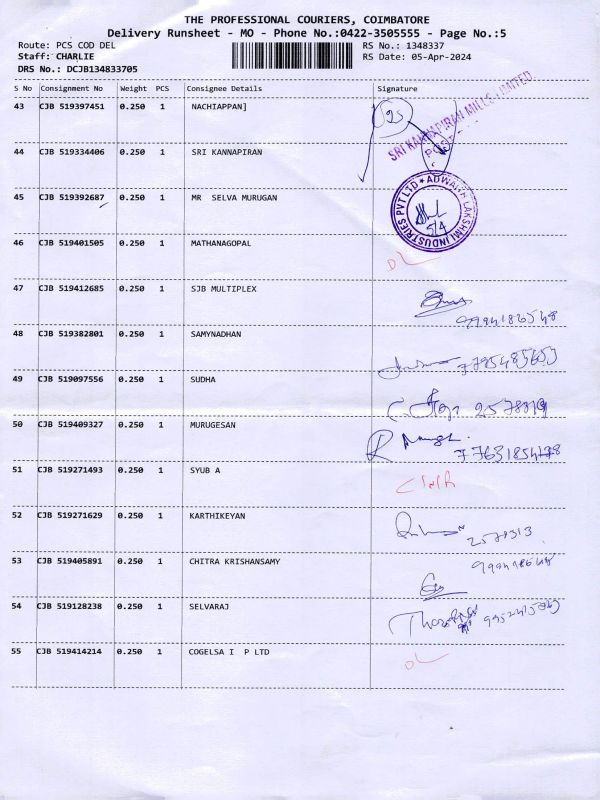 THE PROFESSIONAL COURIERS, COIMBATORE
Delivery Runsheet - MO - Phone No.:0422-3505555 - Page No.:5
Route: PCS COD DEL RS No.: 1348337
Staff: CHARLIE RS Date: 05-Apr-2024
DRS No.: DCJB134833705
S No Consignment No Weight PCS Consignee Details Signature
43 CJB 519397451 0.250 1 NACHIAPPAN]
SRI KANNAPIRAN MILLS LIMITED
44 CJB 519334406 0.250 1 SRI KANNAPIRAN
45 CJB 519392687 0.250 1 MR SELVA MURUGAN
ADWAITH LAKSHMI INDUSTRIES PVT LTD
5/4
46 CJB 519401505 0.250 1 MATHANAGOPAL
DL
47 CJB 519412685 0.250 1 SJB MULTIPLEX
48 CJB 519382801 0.250 1 SAMYNADHAN
49 CJB 519097556 0.250 1 SUDHA
50 CJB 519409327 0.250 1 MURUGESAN
51 CJB 519271493 0.250 1 SYUB A
52 CJB 519271629 0.250 1 KARTHIKEYAN
53 CJB 519405891 0.250 1 CHITRA KRISHANSAMY
54 CJB 519128238 0.250 1 SELVARAJ
55 CJB 519414214 0.250 1 COGELSA I P LTD
DL